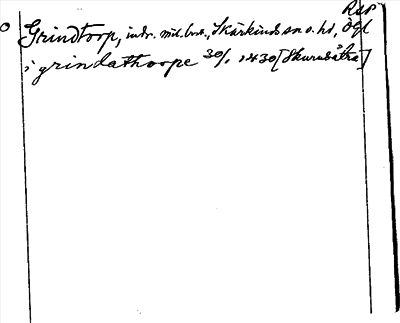 RAP
o Grindtorp, indr. mil. bost., Skärkinds sn o. hd, Ögl
i grindathorpe 30/1 1430 [Skurubåtra]